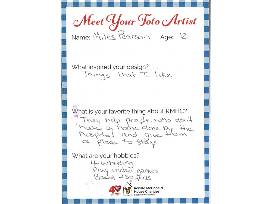 Meet Your Toto Artist
Name: Miles Age: 12
What inspired your design?
Things that I like
What is your favorite thing about RMHC?
They help people who don't
have a home close by the
hospital and give them
a place to stay
What are your hobbies?
Play video games
40
Ronald McDonald
House Charities